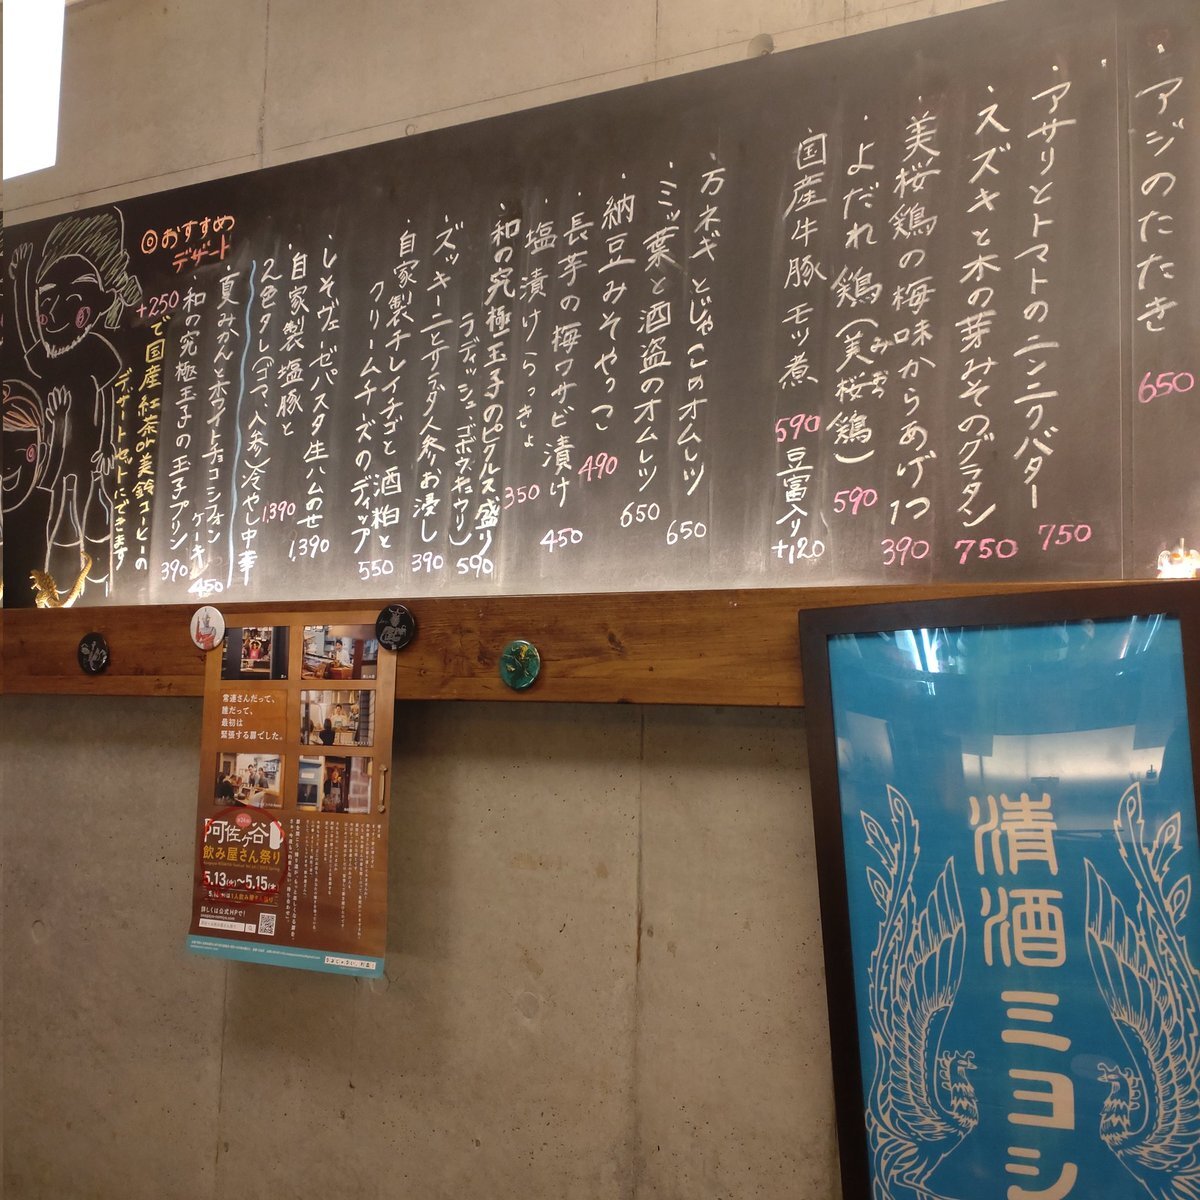 ・アジのたたき 650
・アサリとトマトのニンニクバター 750
・スズキと木の芽みそのグラタン 750
・美桜鶏の梅味からあげ1つ 390
・よだれ鶏(美桜鶏) 590
みお
国産牛豚モツ煮 590 豆富入り+120
・万ネギとじゃこのオムレツ 650
・ミツ葉と酒盗のオムレツ 650
・納豆みそやっこ 490
・長芋の梅ワサビ漬け 450
・塩漬けらっきょ 350
・和の究極玉子のピクルス盛り 590
ラディッシュゴボウキュウリ)
ズッキーニとサラダ人参お浸し 390
自家製チレイチゴと酒粕と
クリームチーズのディップ 550
・しそヴェーゼパスタ生ハムのせ 1,390
・自家製塩豚と 1,390
2色タレ(ゴマ、人参)冷やし中華
◎おすすめ
デザート
・夏みかんとホワイトチョコシフォン
ケーキ 450
・和の究極玉子の玉子プリン 390
+250で国産紅茶or美鈴コーヒーの
デザートセットにできます
常連さんだって、
誰だって、
最初は
緊張する扉でした。
阿佐ヶ谷
飲み屋さん祭り
5.13(火)〜5.15(木)
詳しくは公式HPで!
清酒ミヨシ